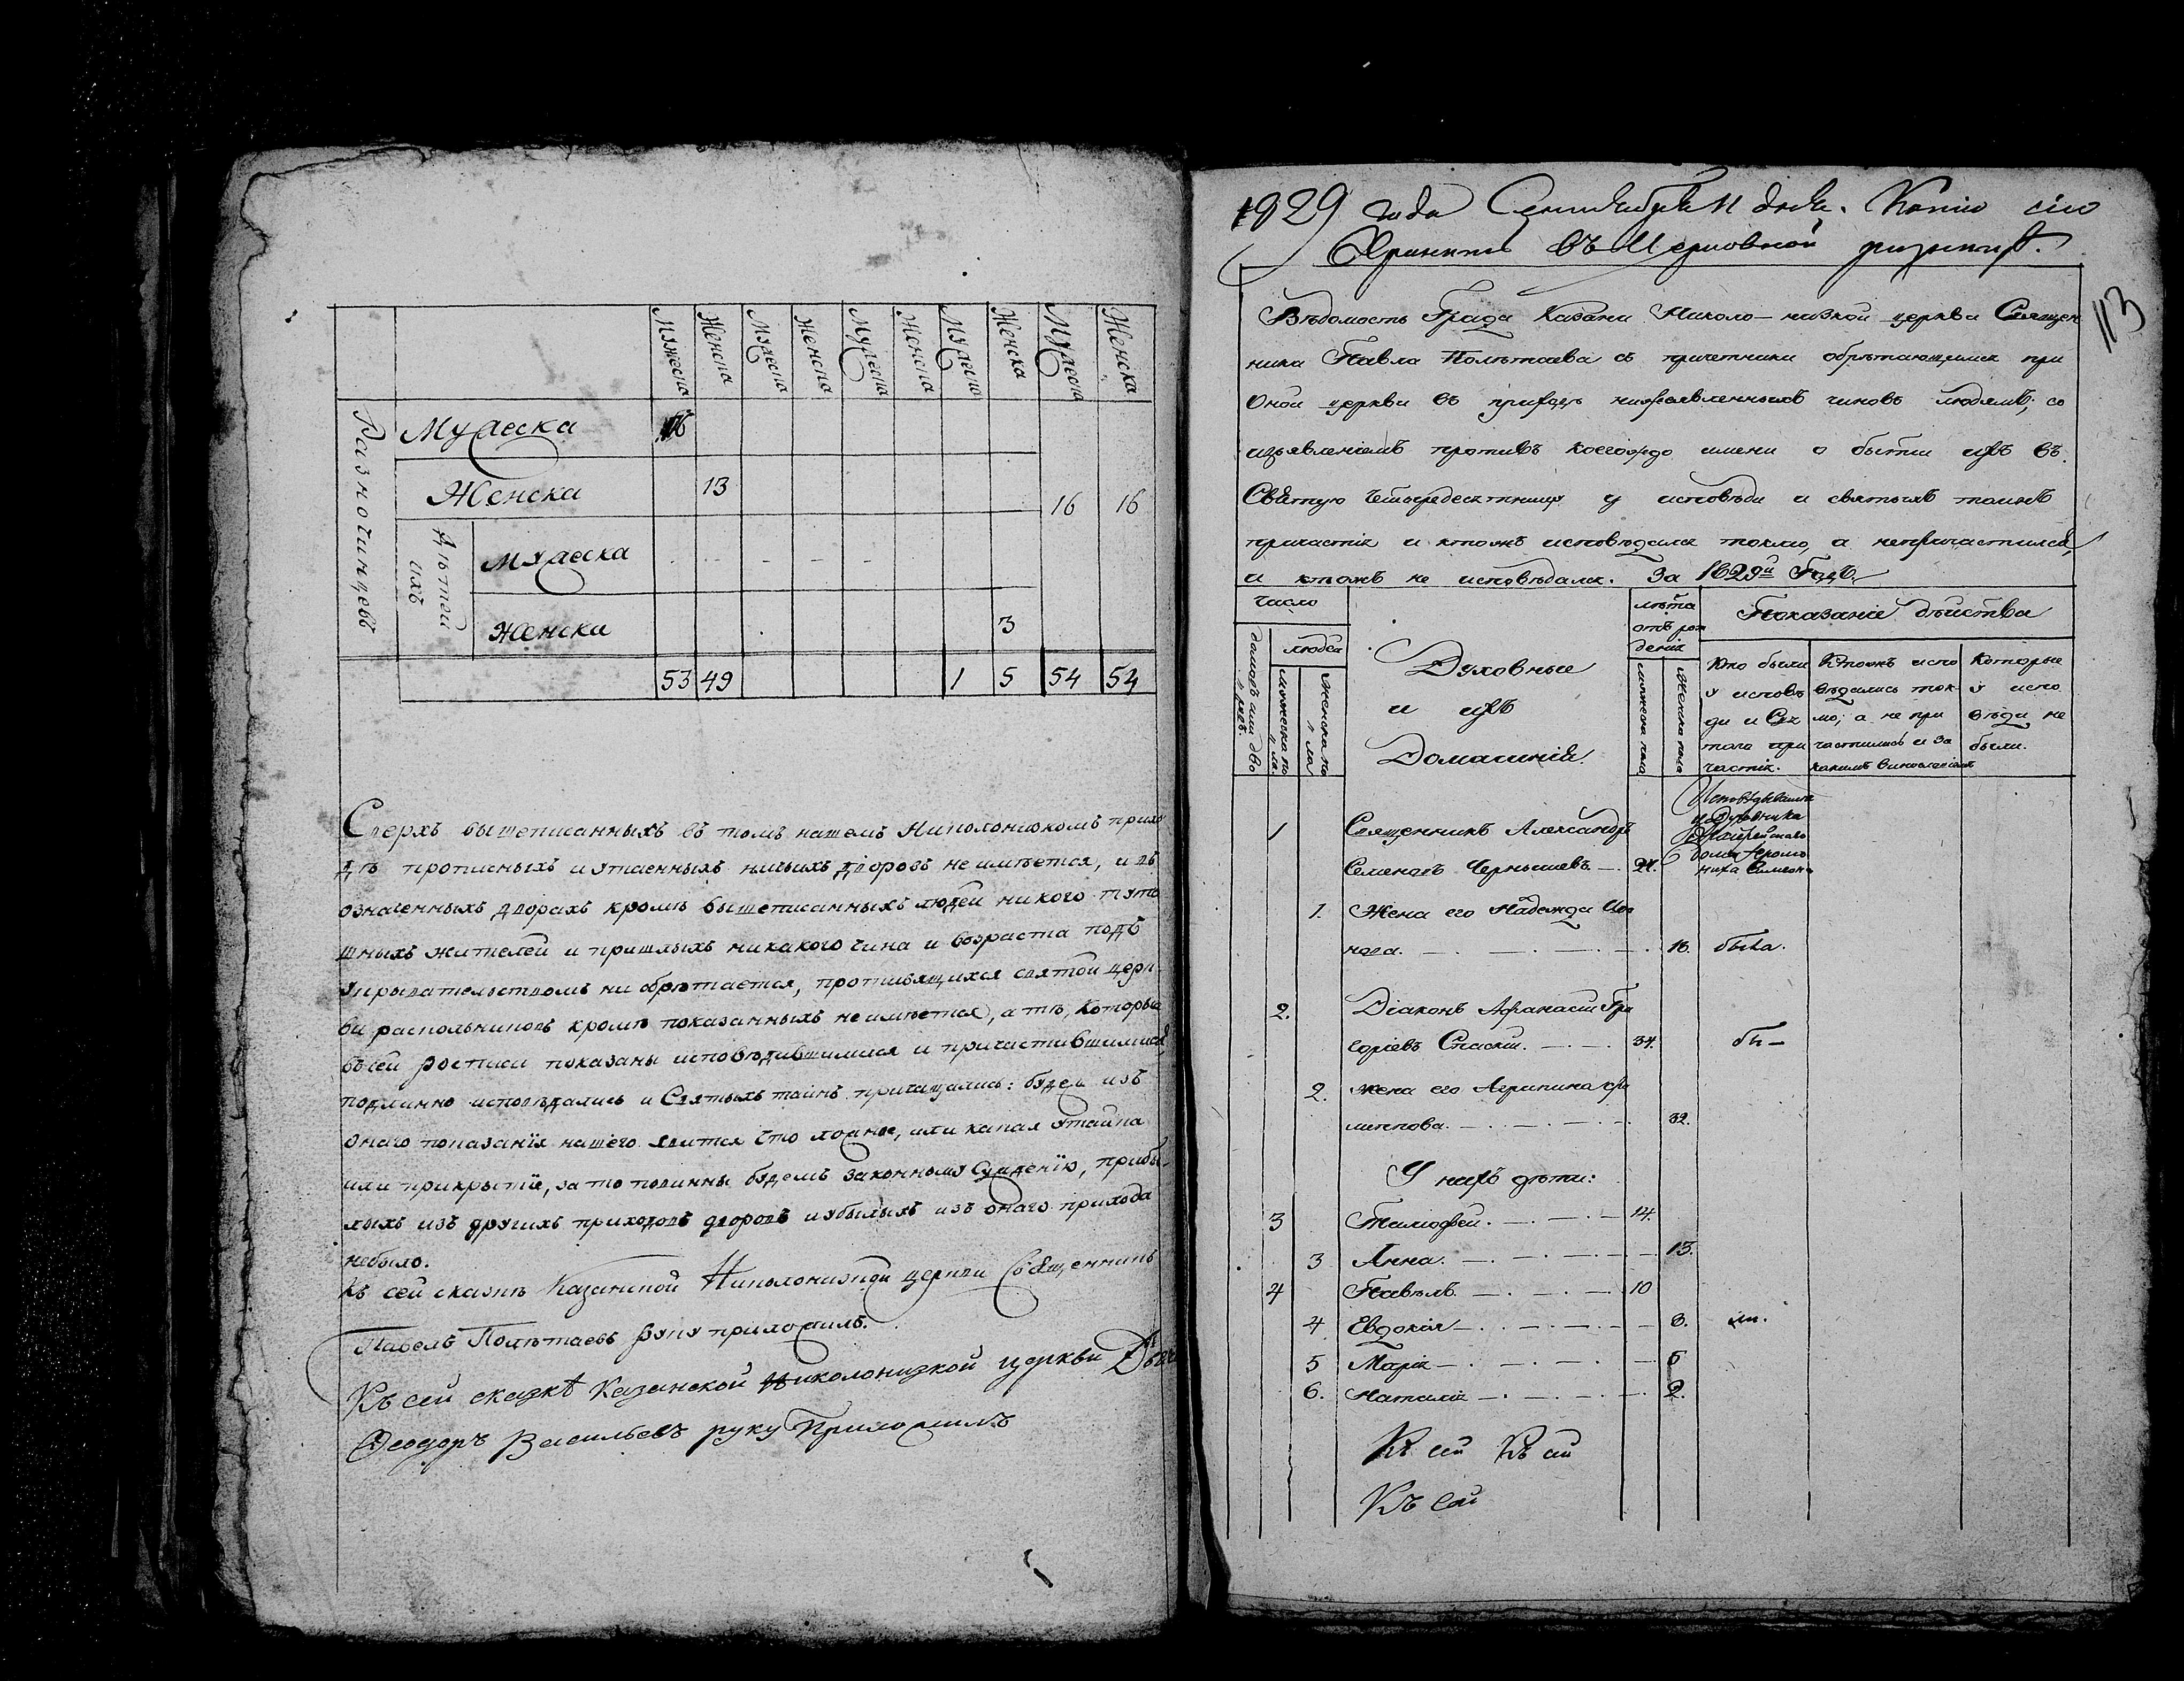 Мужеска Женска Мужеска Женска Мужеска Женска Мужеска Женска Мужеска Женска
Разночинцевъ
Мужеска 16
Женска 13 16 16
Дѣтей ихъ
Мужеска
Женска 3
53 49 1 5 54 54
Сверхъ вышеписанныхъ въ томъ нашемъ Николонизкомъ прихо
дѣ прописныхъ и утаенныхъ ничьихъ дворовъ не имѣется, и въ
означенныхъ дворахъ кромѣ вышеписанныхъ людей никого туто
шныхъ жителей и пришлыхъ никакого чина и возраста подъ
укрывательствомъ ни обрѣтается, противящихся святой церк
ви раскольниковъ кромѣ показанныхъ не имѣется, а тѣ, которые
въ сей росписи показаны исповѣдавшимися и причастившимися,
подлинно исповѣдались и Святыхъ таинъ причащались: будеже изъ
онаго показанія нашего явится что ложное, или какая утайка
или прикрытіе, за то повинны будемъ законному суждению, прибы-
лыхъ изъ другихъ приходовъ дворовъ и убылыхъ изъ онаго прихода
небыло.
Къ сей сказкѣ Казанской Николонизкой церкви Священникъ
Павелъ Полѣтаевъ руку приложилъ.
Къ сей сказкѣ Казанской Николонизкой церкви
Ѳеодоръ Васильевъ руку Приложилъ
1829 года Сентября 11 дня. Копію сію
Хранить въ Церковной ризницѣ.
113
Вѣдомость Града Казани Николо-низкой церкви Священ
ника Павла Полѣтаева съ причетники обрѣтающимся при
оной церкви въ приходѣ нижеявленныхъ чиновъ людямъ, со
изъявленіемъ противъ коегождо имени о бытіи ихъ въ
Святую четыредесятницу у исповѣди и святыхъ таинъ
причастія и ктожъ исповѣдался токмо, а непричастился,
и ктожъ не исповѣдался. За 1829й Годъ.
Число
людей
домовъ или дво
ровъ.
мужеска по
ла.
женска по
ла
Духовные
и ихъ
Домашній.
лѣта
отъ рож
денія
мужеска пола
женска пола
Показаніе дѣйства
Кто были
у исповѣ
ди и Свя
таго при
частія.
Ктожъ испо
вѣдались ток
мо; а не при
частились и за
какимъ виновленіемъ
Которые
у испо
вѣди не
были.
1 Священникъ Александръ
Семеновъ Чернышевъ 24.
Исповѣдывался
у Духовника
Архіерейскаго
дома Іеромо
наха Симеона
1. Жена его Надежда Ива
нова. 18. была.
2. Діаконъ Афанасій Гри
горіевъ Спаскій. 34. бы-
2. жена его Агрипина
32.
У нихъ дѣти:
3 Тимофей. 14.
3 Анна. 13.
4 Павелъ. 10
4 Евдокія 8. ли.
5 Марія 5
6. Наталія 2.
Къ сей Къ сей
Къ сей